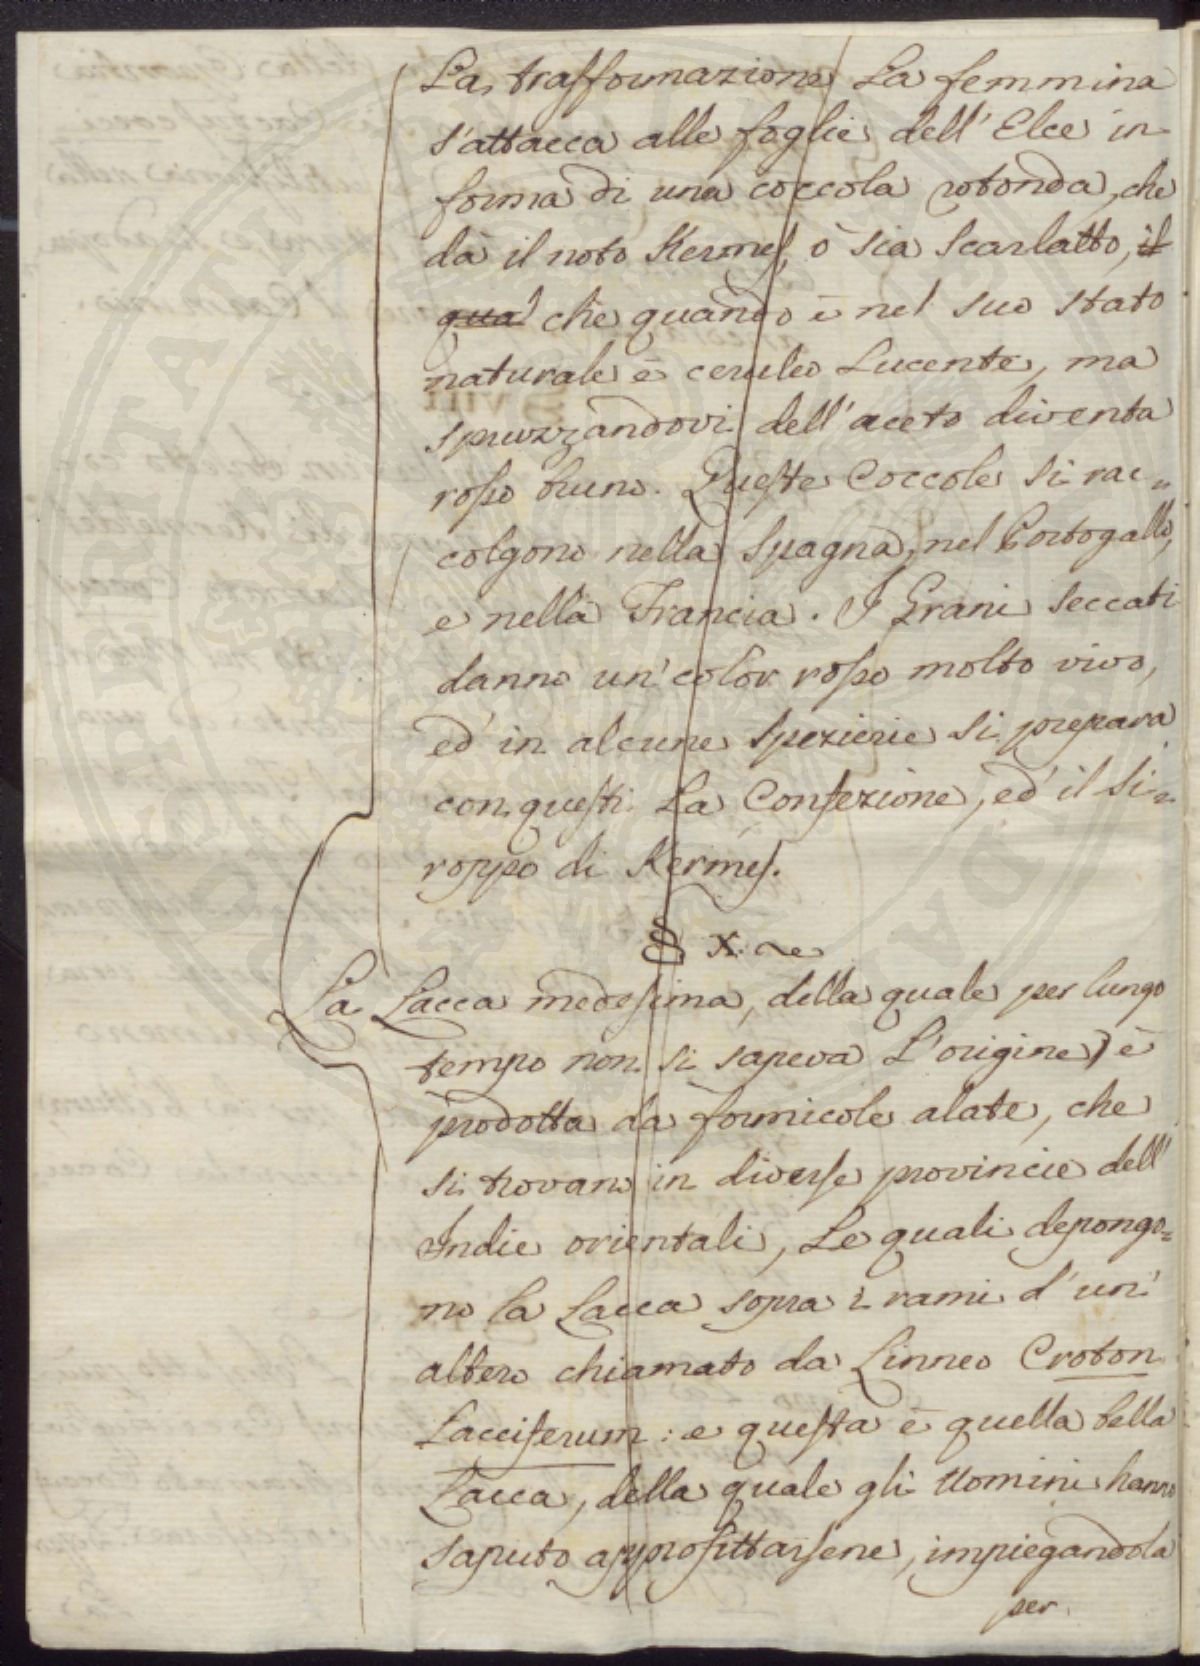 La trasformazione La femmina
s'attacca alle foglie dell'Elce in
forma di una coccola rotonda, che
dà il noto Kermes, ò sia Scarlatto, il
qual che quando è nel suo stato
naturale è ceruleo Lucente, ma
spruzzandovi dell'aceto diventa
rosso bruno. Queste Coccole si rac=
colgono nella Spagna, nel Portogallo,
e nella Francia. I Grani seccati
danno un' color rosso molto vivo,
ed' in alcune Spezierie si prepara
con questi La Confezione, ed' il Si=
roppo di Kermes.
§ X.
La Lacca medesima, della quale per lungo
tempo non si sapeva L'origine) è
prodotta da formicole alate, che
si trovano in diverse provincie dell'
Indie orientali, Le quali depongo=
no la Lacca sopra i rami d'un'
albero chiamato da Linneo Croton
Lacciferum: e questa è quella bella
Lacca, della quale gli Uomini hanno
saputo approfittarsene, impiegandola
per